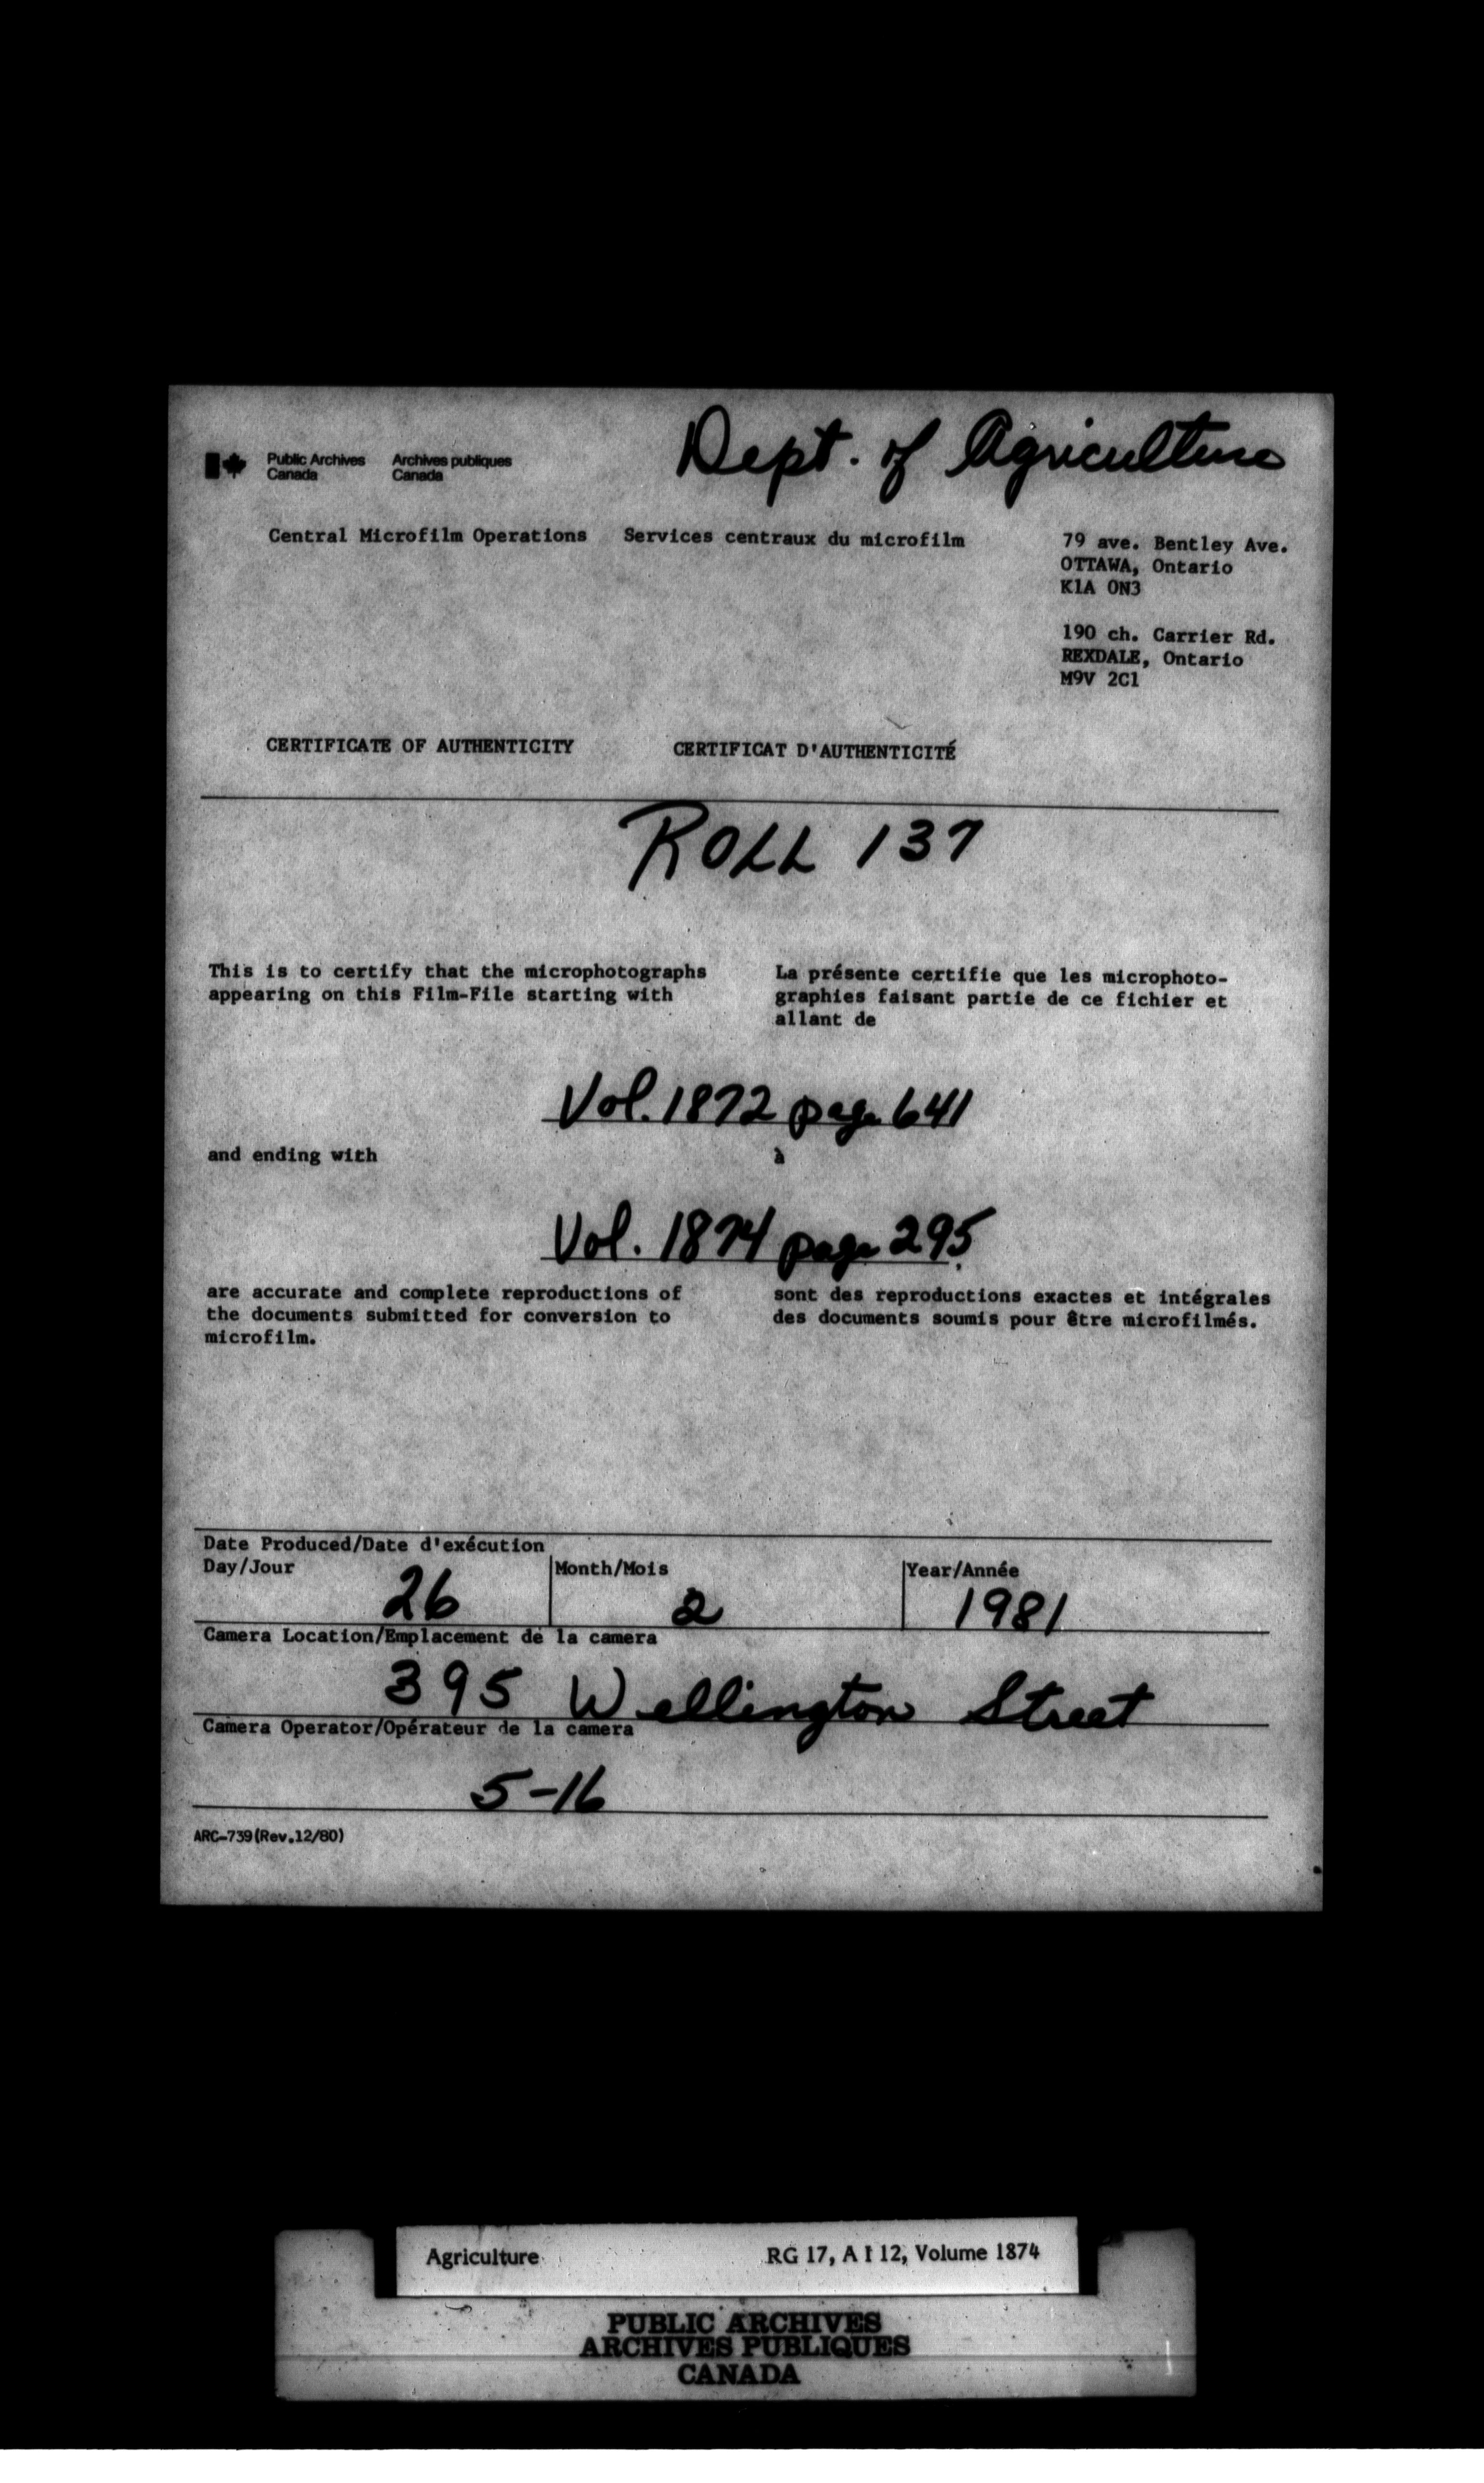 Dept. of Agriculture
Public Archives Archives publiques
Canada Canada
Central Microfilm Operations Services centraux du microfilm
79 ave. Bentley Ave.
OTTAWA, Ontario
K1A 0N3
190 ch. Carrier Rd.
REXDALE, Ontario
M9V 2C1
CERTIFICATE OF AUTHENTICITY CERTIFICAT D'AUTHENTICITÉ
ROLL 137
This is to certify that the microphotographs
appearing on this Film-File starting with
La présente certifie que les microphoto-
graphies faisant partie de ce fichier et
allant de
Vol. 1872 page 641
and ending with à
Vol. 1874 page 295
are accurate and complete reproductions of
the documents submitted for conversion to
microfilm.
sont des reproductions exactes et intégrales
des documents soumis pour être microfilmés.
Date Produced/Date d'exécution
Day/Jour Month/Mois Year/Année
26 2 1981
Camera Location/Emplacement de la camera
395 Wellington Street
Camera Operator/Opérateur de la camera
5-16
ARC-739 (Rev.12/80)
Agriculture RG 17, A I 12, Volume 1874
PUBLIC ARCHIVES
ARCHIVES PUBLIQUES
CANADA